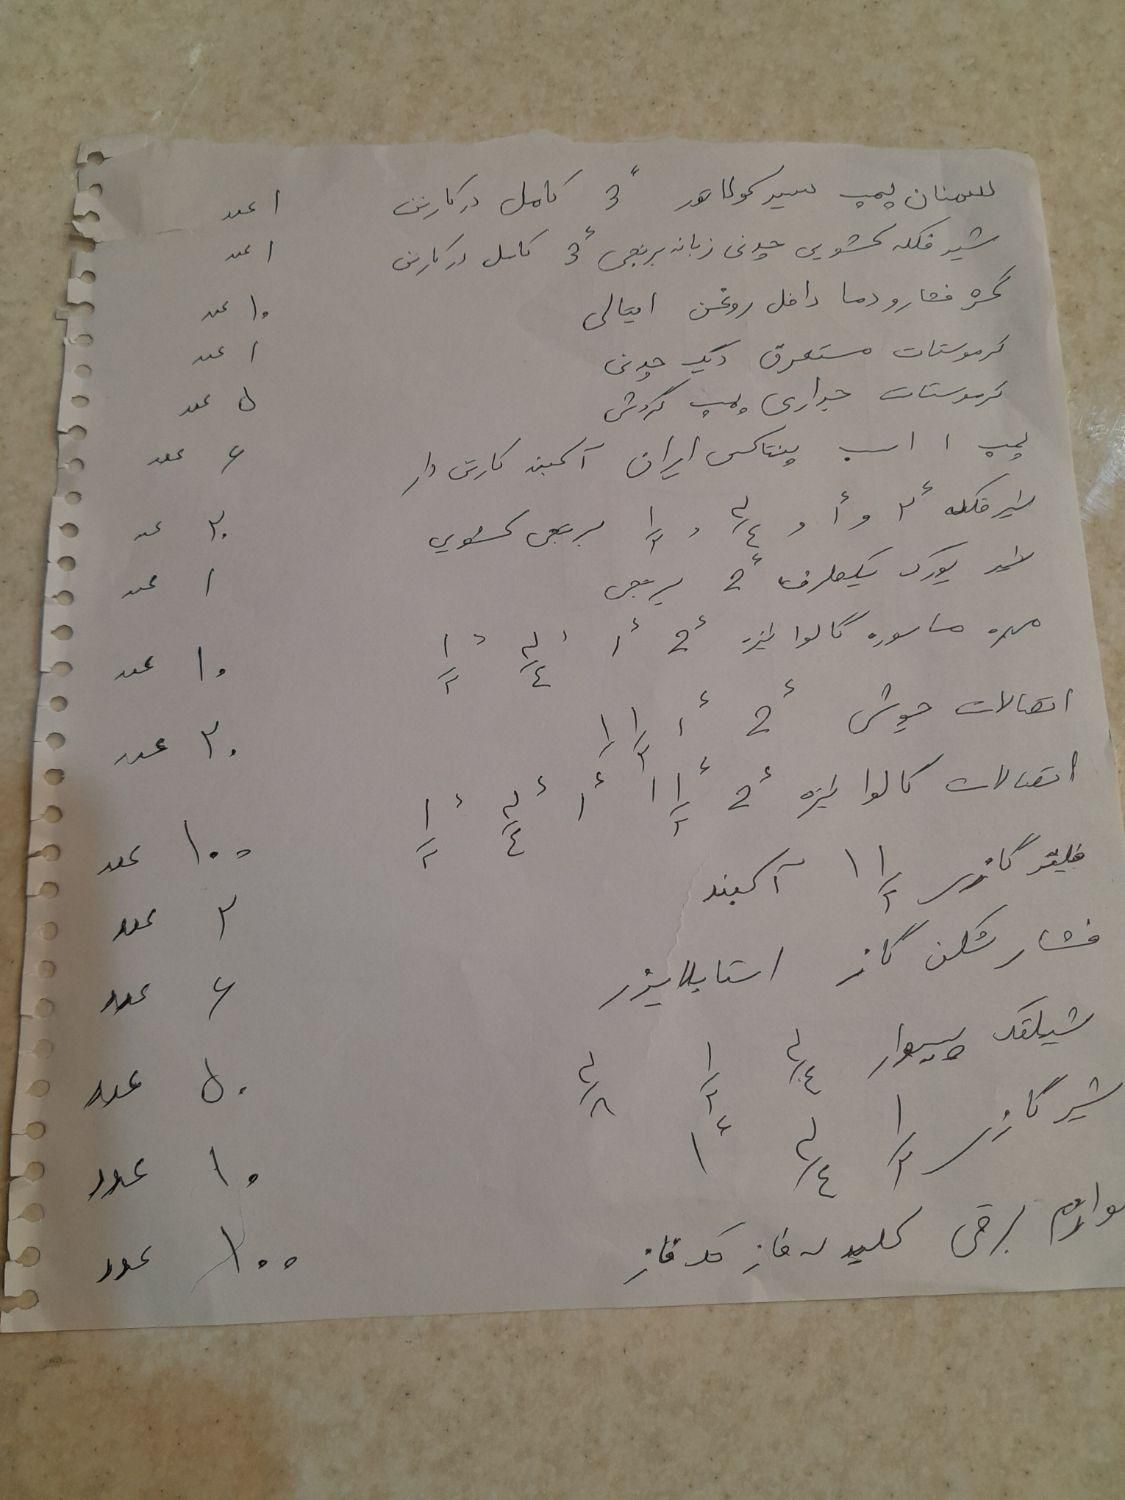 سمنان پمپ سیرکولاهور 3" کامل در کارتن ۱ عدد
شیر فلکه کشویی چدنی زبانه برنجی 3" کامل در کارتن ۱ عدد
گیج فشار و دما داخل روغن ایتالی ۱۰ عدد
ترموستات مستغرق دیگ چدنی ۱ عدد
ترموستات جداری پمپ گردش ۵ عدد
پمپ ۱ اسب پنتاکس ایران آکبند کارتن دار ۶ عدد
شیر فلکه ۲" و ۱" و ۳/۴ و ۱/۲ برنجی کشویی ۲۰ عدد
شیر یکطرفه 2" برنجی ۱ عدد
مهره ماسوره گالوانیزه 2" ۱" ۳/۴" ۱/۲" ۱۰ عدد
اتصالات جوش 2" ۱" ۱ ۱/۲ ۲۰ عدد
اتصالات گالوانیزه 2" ۱ ۱/۲" ۱" ۳/۴" ۱/۲" ۱۰۰ عدد
فیلتر گازی ۱ ۱/۲ آکبند ۲ عدد
فشار شکن گاز استابلایزر ۶ عدد
شیلنگ پیسوار ۳/۴ ۱/۲ ۳/۸ ۵۰ عدد
شیر گازی ۱/۲ ۳/۴ ۱" ۱۰ عدد
لوازم برقی کلید سه فاز تک فاز ۱۰۰ عدد